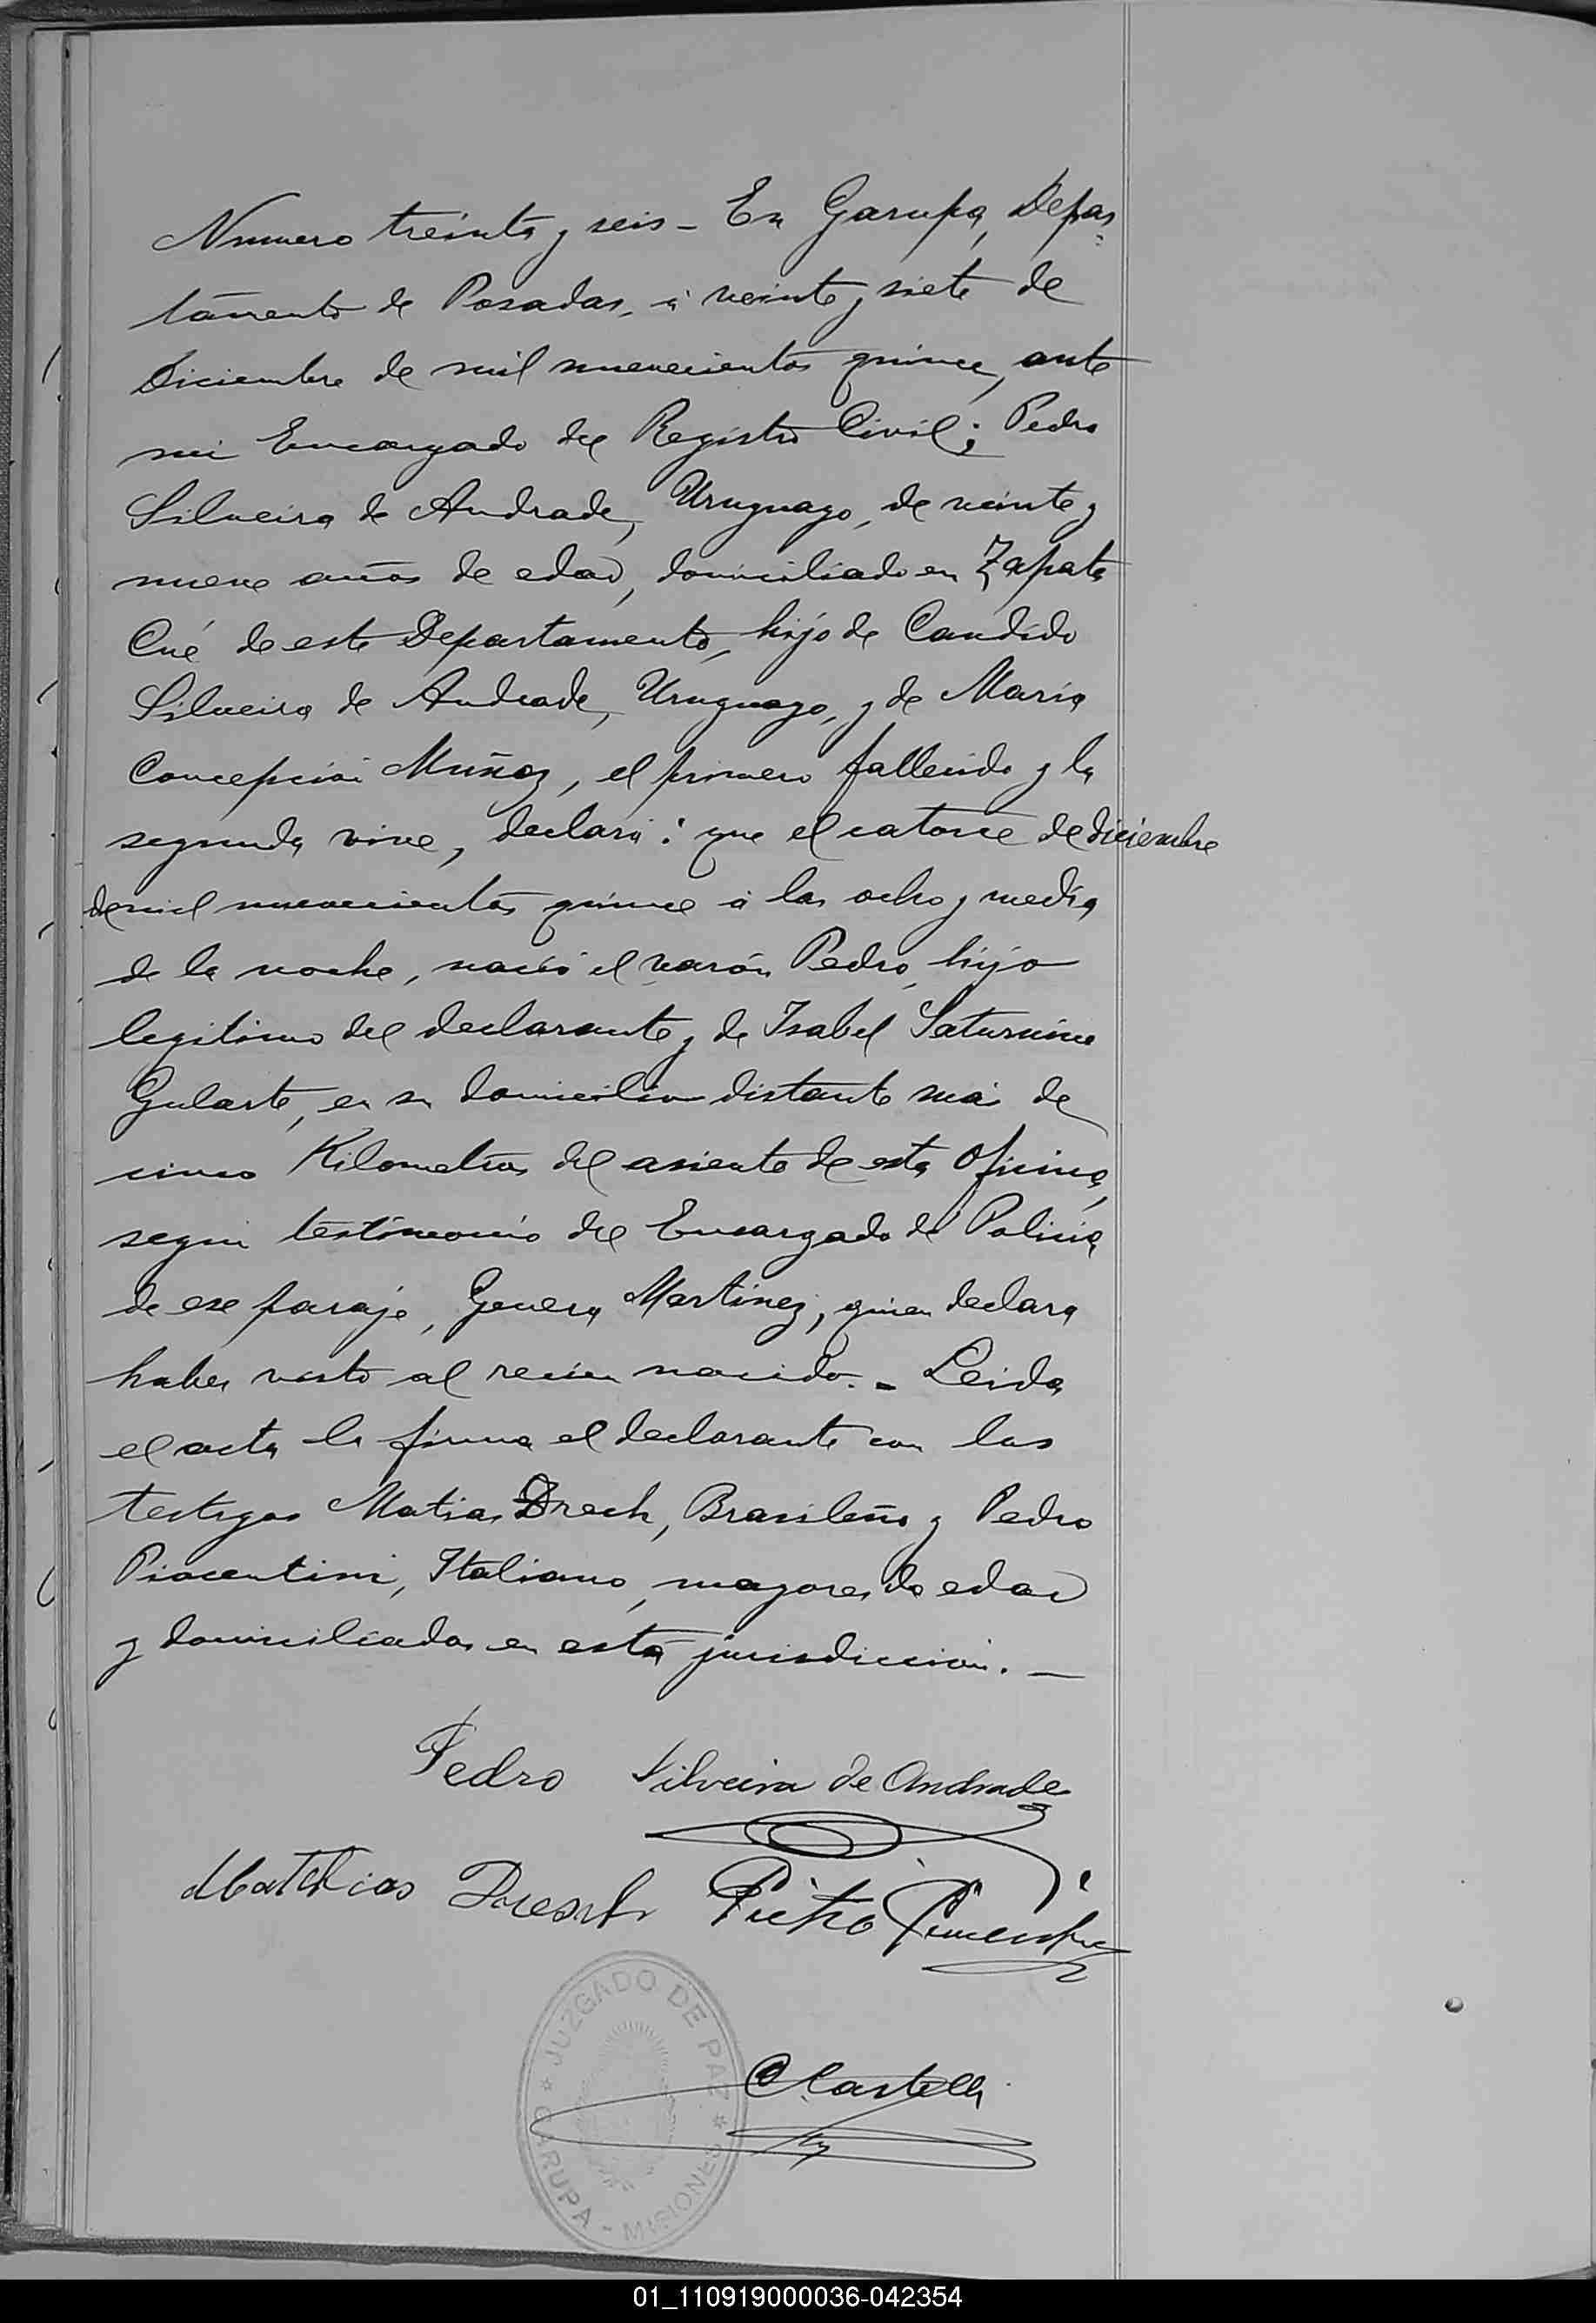 Numero treinta y seis - En Garupa, Depar
tamento de Posadas, á veinte y siete de
Diciembre de mil nuevecientos quince, ante
mi Encargado del Registro Civil; Pedro
Silveira de Andrade, Uruguayo, de veinte y
nueve años de edad, domiciliado en Zapata
Cué de este Departamento, hijo de Candido
Silveira de Andrade, Uruguayo, y de Maria
Concepción Muñoz, el primero fallecido y la
segunda vive, declara: que el catorce de diciembre
de mil nuevecientos quince á las ocho y media
de la noche, nació el varón Pedro, hijo
legitimo del declarante y de Isabel Saturnina
Gularte, en su domicilio distante más de
cinco Kilometros del asiento de esta Oficina,
segun testimonio del Encargado de Policia
de ese paraje, Martinez, quien declara
haber visto al recien nacido. - Leida
el acta la firma el declarante con los
testigos Matias Drech, Brasileño y Pedro
Piacentini, Italiano, mayores de edad
y domiciliados en esta jurisdicción. —
Pedro Silveira de Andrade
Mathias Dresch Pietro
Castelli
JUZGADO DE PAZ
GARUPA - MISIONES
01_110919000036-042354